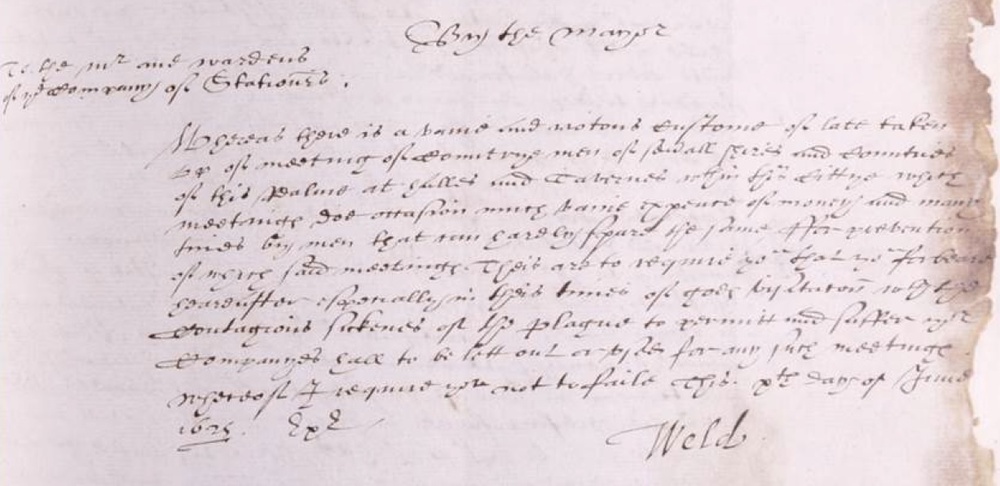 By the Mayor
To the Mr and wardens
of ye Company of Stationrs.
Whereas there is a vaine and riotous Custome of late taken
up of meeting of Countrye men of seuall shires and Counties
of this Realme at halles and Tavernes wthin this Cittye which
meetings doe occasion much vaine expence of money and many
times by men that can hardly spare the same ffor prevention
of which said meetings Theis are to require you that ye forbeare
heareafter especially in this times of gods visitacon wth the
Contagious sickenes of the plague to permitt and suffer yor
Companyes hall to be lett out or used for any such meetings
whereof I require you not to faile This xth day of June
1625.
Weld